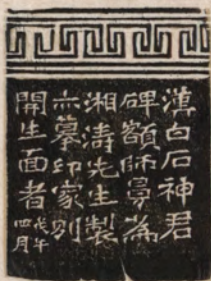 漢白石神君
碑額師曼為
湘濤先生製
亦摹印家別
開生面者
戊午
四月